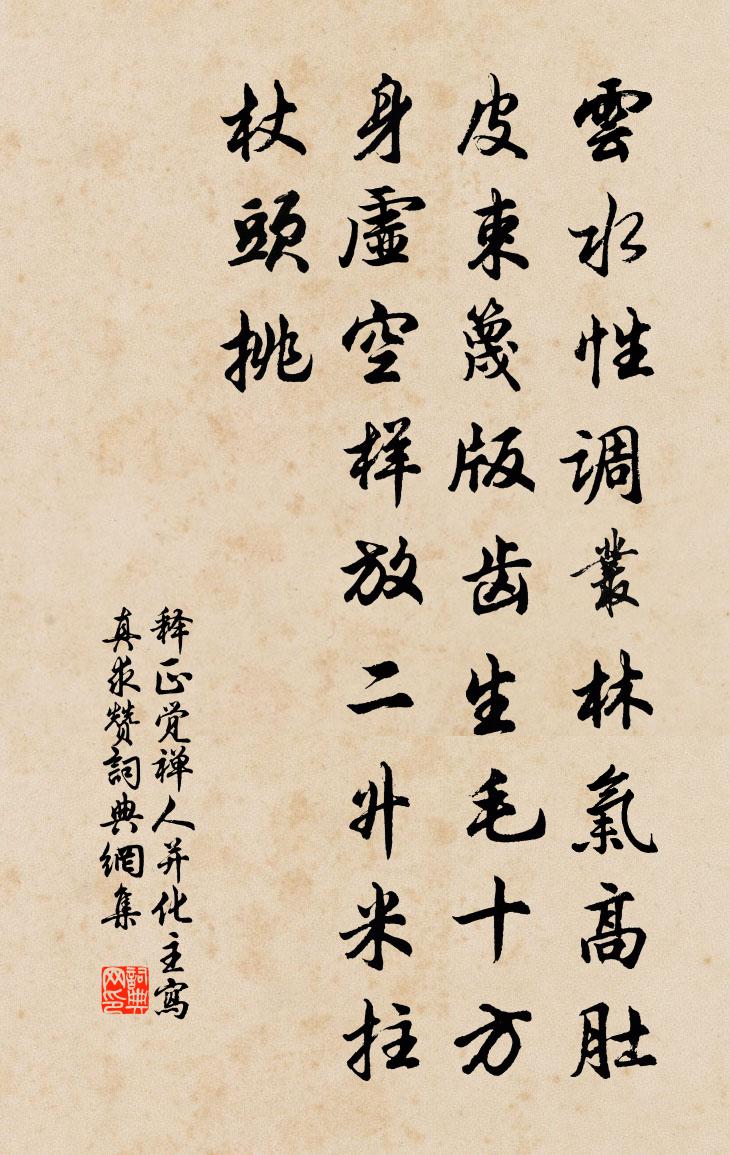 雲水性調叢林氣高肚
皮束篾版齿生毛十方
身虛空样放二升米拄
杖頭挑
释正觉禅人并化主寫
真求赞詞典網集
詞典网印